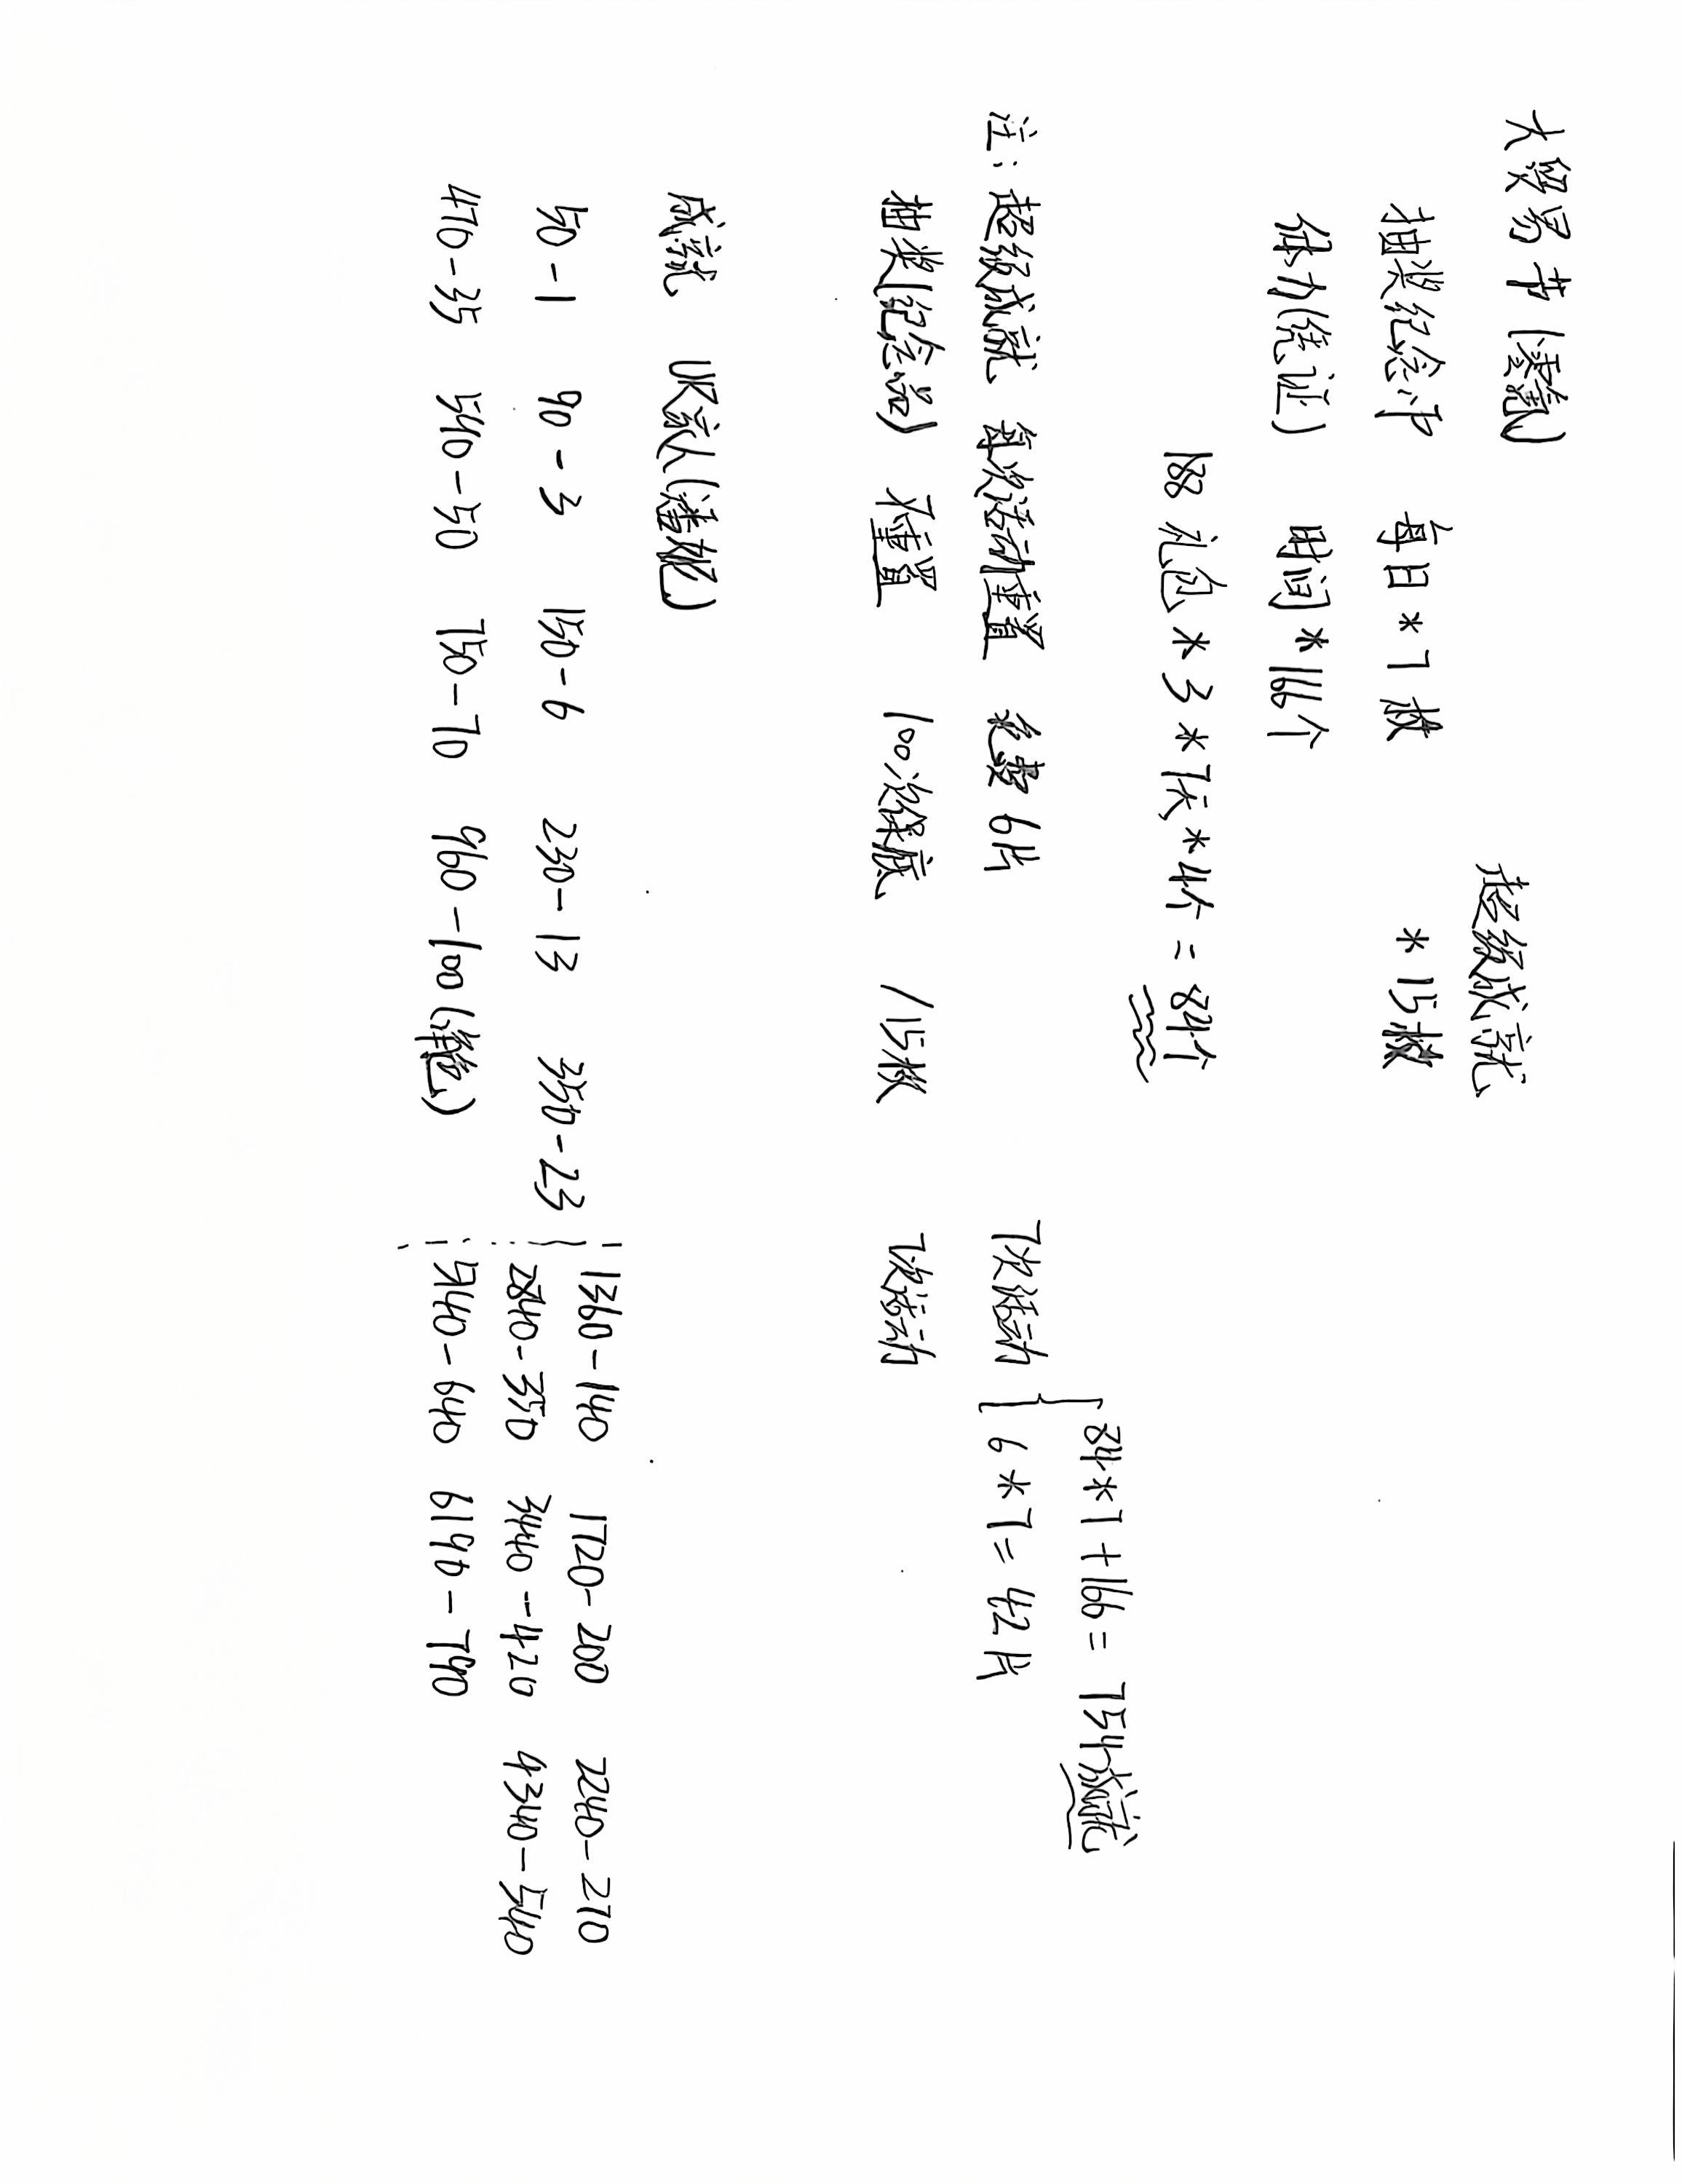 大贸易节(氪)
超级成就
抽奖纪念币 每日*7枚 *15枚
体力(凭证) 时间*166个
188 礼包*3*7天*4个=84个
84*7+166=754成就
注:超级成就 每次活动重置 6片 7次活动
6*7=42片
抽奖(纪念品) 不重置 100次保底 /15枚 7次活动
成就 UR家人(潘妮)
50-1 90-3 150-6 230-13 350-23
470-35 540-50 750-70 960-100(绝色)
1360-140 1720-200 2240-270
2840-350 3440-420 4340-540
5140-640 6190-790